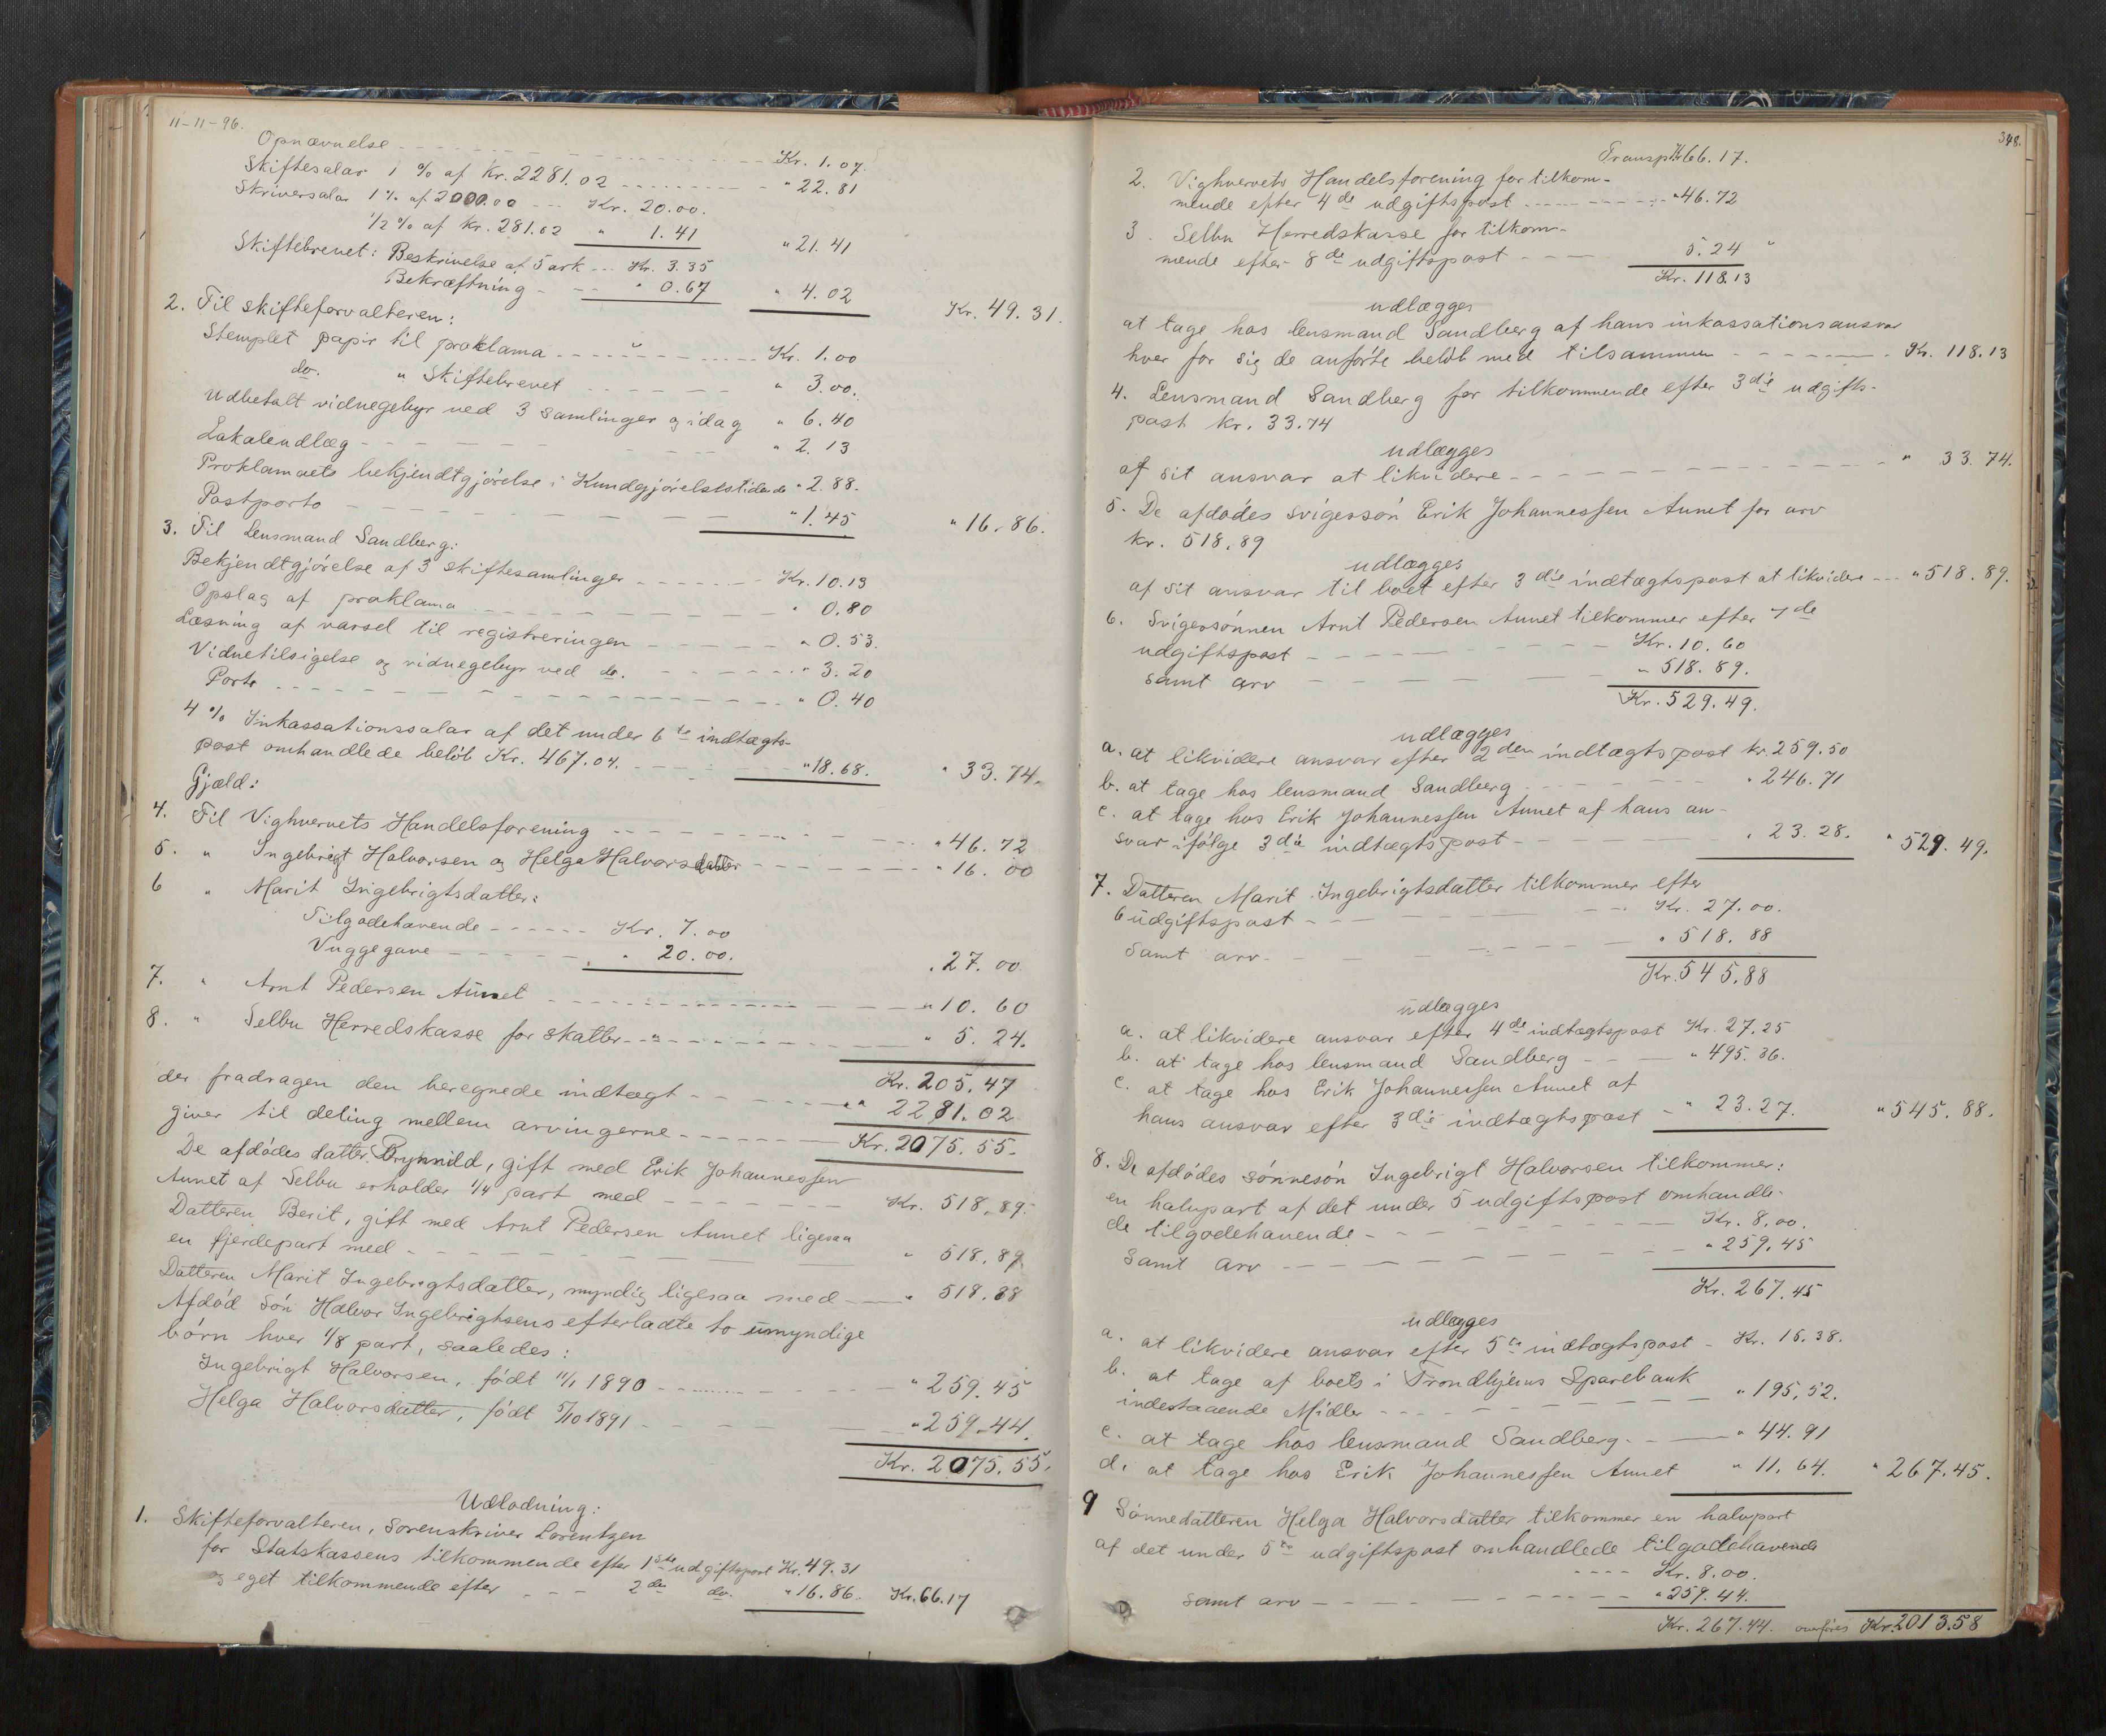 11-11-96.
Opnævnelse Kr. 1.07
Skiftesalar 1 % af Kr. 2281.02 " 22.81
Skriversalar 1 % af 2000.00 Kr. 20.00.
1/2 % af kr. 281.02 " 1.41 " 21.41
Skiftebrevet: Beskrivelse af 5 ark Kr. 3.35
Bekræftning " 0.67 " 4.02 Kr. 49.31.
2. Til skifteforvalteren:
Stemplet papir til proklama Kr. 1.00
do. " Skiftebrevet " 3.00.
Udbetalt vidnegebyr ved 3 samlinger og idag " 6.40
Lokaleudlæg " 2.13
Proklamaets bekjendtgjørelse i Kundgjørelsestidende " 2.88.
Postporto " 1.45 " 16.86.
3. Til Lensmand Sandberg:
Bekjendtgjørelse af 3 skiftesamlinger Kr. 10.13
Opslag af proklama " 0.80
Læsning af varsel til registreringen " 0.53.
Vidnetilsigelse og vidnegebyr ved do. " 3.20
Porto " 0.40
4 % Inkassationssalar af det under 6te indtægts-
post omhandlede beløb Kr. 467.04. " 18.68. " 33.74.
Gjæld:
4. Til Vighvervets Handelsforening " 46.72
5. " Ingebrigt Halvorsen og Helga Halvorsdatter " 16.00
6 " Marit Ingebrigtsdatter:
Tilgodehavende Kr. 7.00
Vuggegave " 20.00. " 27.00
7. " Arnt Pedersen Aunet " 10.60
8. " Selbu Herredskasse for skatter " 5.24.
Kr. 205.47
der fradragen den beregnede indtægt " 2281.02
giver til deling mellem arvingerne Kr. 2075.55.
De afdødes datter Brynnild, gift med Erik Johannessen
Aunet af Selbu erholder 1/4 part med Kr. 518.89.
Datteren Berit, gift med Arnt Pedersen Aunet ligesaa
en fjerdepart med " 518.89
Datteren Marit Ingebrigtsdatter, myndig ligesaa med " 518.88
Afdød søn Halvor Ingebrigtsens efterladte to umyndige
børn hver 1/8 part, saaledes:
Ingebrigt Halvorsen, født 11/1 1890 " 259.45
Helga Halvorsdatter, født 5/10 1891 " 259.44.
Kr. 2075.55.
Udlodning:
1. Skifteforvalteren, Sorenskriver Lorentzen
for Statskassens tilkommende efter 1ste udgiftspost Kr. 49.31
og eget tilkommende efter 2den do. " 16.86. Kr. 66.17
348.
Transp. Kr. 66.17.
2. Vighvervets Handelsforening for tilkom-
mende efter 4de udgiftspost " 46.72
3. Selbu Herredskasse for tilkom-
mende efter 8de udgiftspost 5.24 "
Kr. 118.13
udlægges
at tage hos lensmand Sandberg af hans inkassationsansvar
hver for sig de anførte beløb med tilsammen Kr. 118.13
4. Lensmand Sandberg for tilkommende efter 3die udgifts-
post kr. 33.74
udlægges
af sit ansvar at likvidere " 33.74.
5. De afdødes svigersøn Erik Johannessen Aunet for arv
kr. 518.89
udlægges
af sit ansvar til boet efter 3die indtægtspost at likvidere " 518.89.
6. Svigersønnen Arnt Pedersen Aunet tilkommer efter 7de
udgiftspost Kr. 10.60
samt arv " 518.89.
Kr. 529.49.
udlægges
a. at likvidere ansvar efter 2den indtægtspost kr. 259.50
b. at tage hos lensmand Sandberg " 246.71
c. at tage hos Erik Johannessen Aunet af hans an-
svar ifølge 3die indtægtspost " 23.28. " 529.49.
7. Datteren Marit Ingebrigtsdatter tilkommer efter
6 udgiftspost Kr. 27.00.
Samt arv " 518.88
Kr. 545.88
udlægges
a. at likvidere ansvar efter 4de indtægtspost Kr. 27.25
b. at tage hos lensmand Sandberg " 495.36.
c. at tage hos Erik Johannessen Aunet af
hans ansvar efter 3die indtægtspost " 23.27. " 545.88.
8. De afdødes sønnesøn Ingebrigt Halvorsen tilkommer:
en halvpart af det under 5 udgiftspost omhandle-
de tilgodehavende Kr. 8.00.
Samt arv " 259.45
Kr. 267.45
udlægges
a. at likvidere ansvar efter 5te indtægtspost Kr. 15.38.
b. at tage af boets i Trondhjems Sparebank
indestaaende Midler " 195.52.
c. at tage hos lensmand Sandberg " 44.91
d. at tage hos Erik Johannessen Aunet " 11.64. " 267.45.
9 Sønnedatteren Helga Halvorsdatter tilkommer en halvpart
af det under 5te udgiftspost omhandlede tilgodehavende
Kr. 8.00.
samt arv " 259.44.
Kr. 267.44. overføres Kr. 2013.58